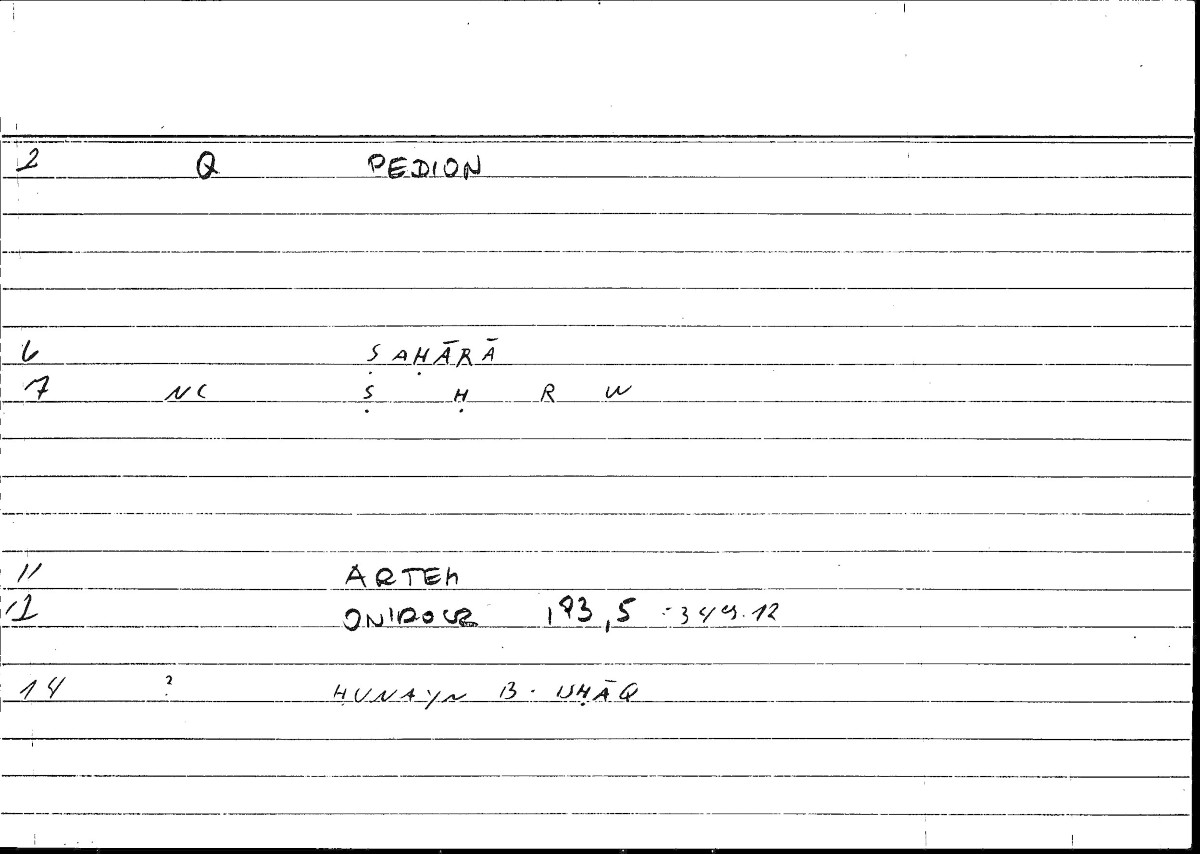 2 Q PEDION
6 ṢAḤĀRĀ
7 NC Ṣ Ḥ R W
11 ARTEM
12 ONIROCR 193,5 = 349.12
14 ? ḤUNAYN B. ISḤĀQ